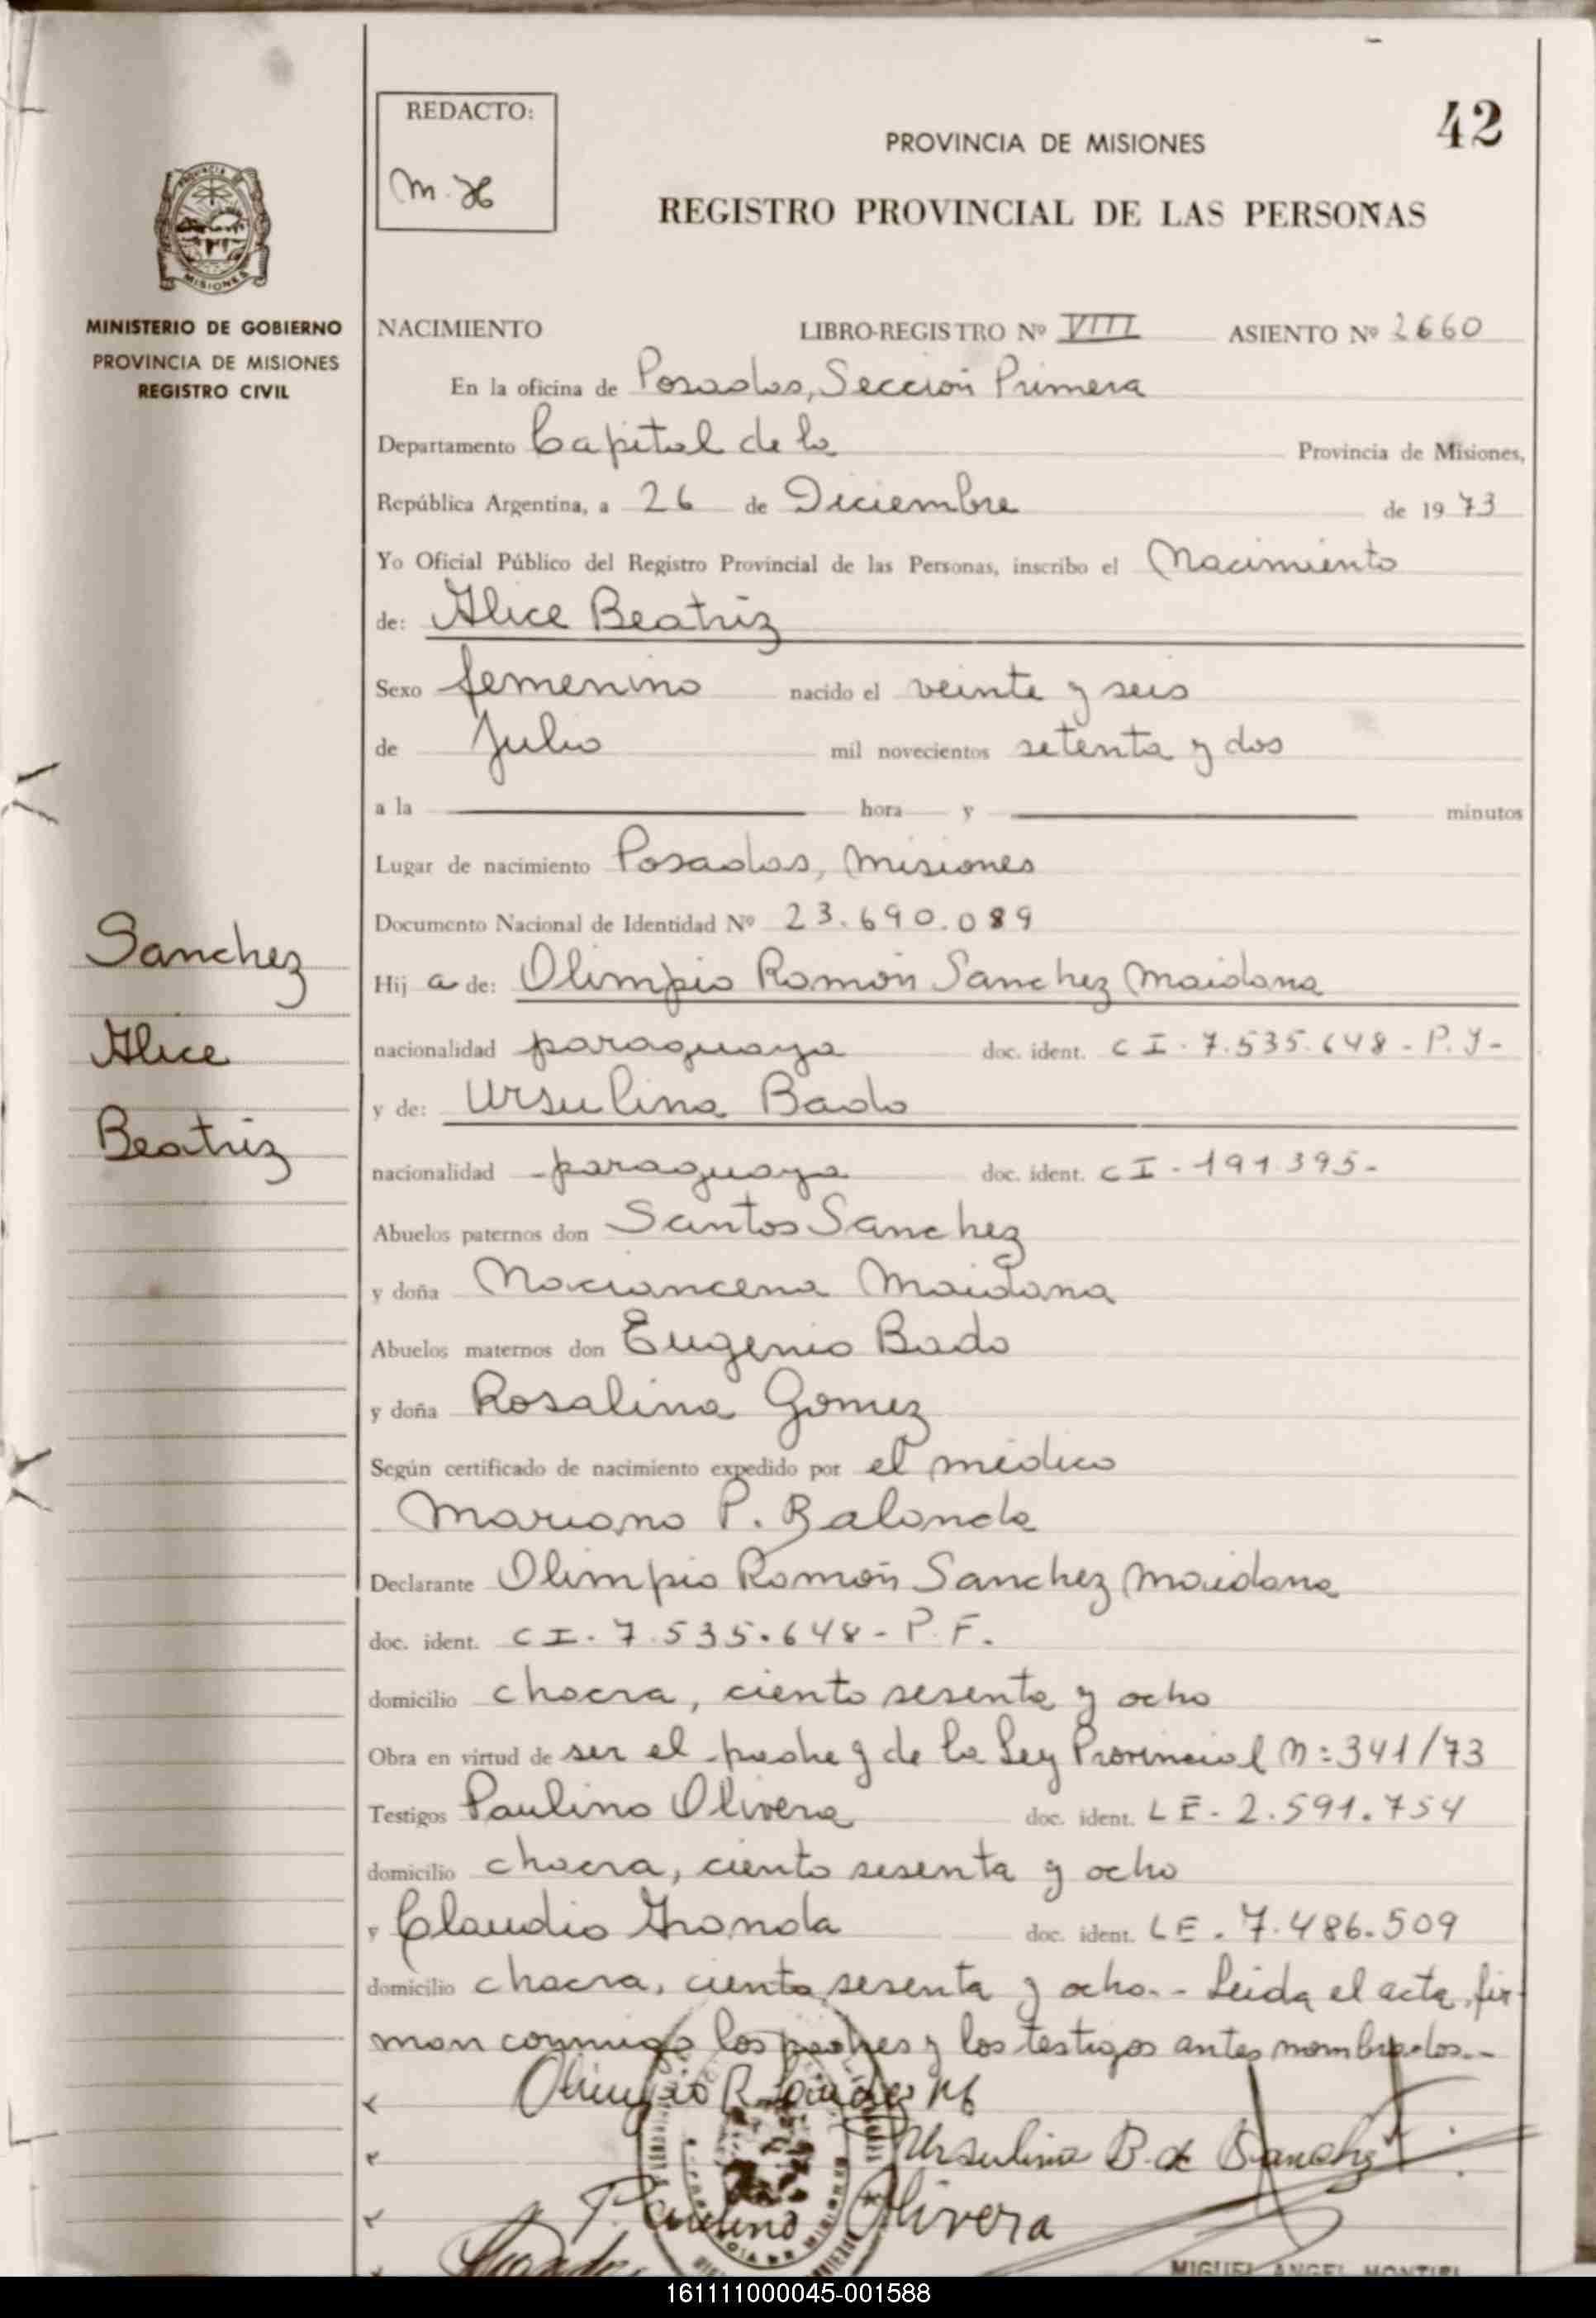 REDACTO:
M. H
42
PROVINCIA DE MISIONES
REGISTRO PROVINCIAL DE LAS PERSONAS
PROVINCIA DE
MISIONES
MINISTERIO DE GOBIERNO
PROVINCIA DE MISIONES
REGISTRO CIVIL
NACIMIENTO LIBRO-REGISTRO Nº VIII ASIENTO Nº 2660
En la oficina de Posadas, Sección Primera
Departamento Capital de la Provincia de Misiones,
República Argentina, a 26 de Diciembre de 1973
Yo Oficial Público del Registro Provincial de las Personas, inscribo el Nacimiento
de: Alice Beatriz
Sexo femenino nacido el veinte y seis
de Julio mil novecientos setenta y dos
a la hora y minutos
Lugar de nacimiento Posadas, Misiones
Documento Nacional de Identidad Nº 23.690.089
Sanchez
Alice
Beatriz
Hij a de: Olimpio Ramón Sanchez Maidana
nacionalidad paraguaya doc. ident. CI. 7.535.648 - P.F-
y de: Ursulina Bado
nacionalidad paraguaya doc. ident. CI - 191.395-
Abuelos paternos don Santos Sanchez
y doña Naciancena Maidana
Abuelos maternos don Eugenio Bado
y doña Rosalina Gomez
Según certificado de nacimiento expedido por el médico
Mariano P. Balonda
Declarante Olimpio Ramón Sanchez Maidana
doc. ident. CI. 7.535.648 - P.F.
domicilio chacra, ciento sesenta y ocho
Obra en virtud de ser el padre y de la Ley Provincial N: 341/73
Testigos Paulino Olivera doc. ident. LE - 2.591.754
domicilio chacra, ciento sesenta y ocho
y Claudio Granda doc. ident. LE. 7.486.509
domicilio chacra, ciento sesenta y ocho.- Leida el acta, fir-
man conmigo los padres y los testigos antes nombrados.-
Olimpio R. Sanchez M
Ursulina B. de Sanchez
Paulino Olivera
MIGUEL ANGEL MONTIEL
161111000045-001588